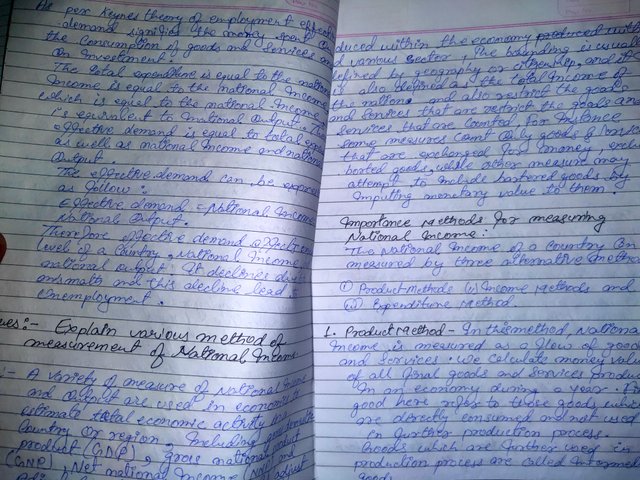 As per Keynes theory of employment effective
demand signifies the money spent on
the consumption of goods and services and
on Investment.
The total expenditure is equal to the national
Income is equal to the national Income
which is equal to the national Income
is equivalent to national output. The
effective demand is equal to total expen
as well as national Income and nationa
Output.
The effective demand can be expres
as follow:
Effective demand = National Income
National Output.
Therefore effective demand affect
level of a country, National Income,
national output. It declines due
and this decline lead
Unemployment.
ues:- Explain various method of
measurement of National Income
:- A variety of measure of National Income
and output are used in economics
estimate total economic activity in a
Country or region, Including
product (GDP), gross national product
(GNP), Net national Income (NNI) adjust
duced within the economy produced with
and various sector. The bounding is usual
defined by geography or citizenship, and it
is also defined as the total Income of
the nation and also restrict the goods
and services that are restrict the goods an
services that are counted for Instance
some measures count only goods & servic
that are exchanged for money, exclu
barted goods, while other measure may
attempt to include bartered goods by
Imputing monetary value to them.
Importance Methods for measuring
National Income:
The National Income of a country can
measured by three alternative method
(i) Product Methods (ii) Income Methods and
(iii) Expenditure Method.
1. Product Method - In this method, National
Income is measured as a flow of good
and Services. We calculate money value
of all final goods and services produce
In an economy during a year. Fin
good here refer to those goods which
are directly consumed and not used
in further production process.
Goods which are further used in
production process are called Intermed
goods